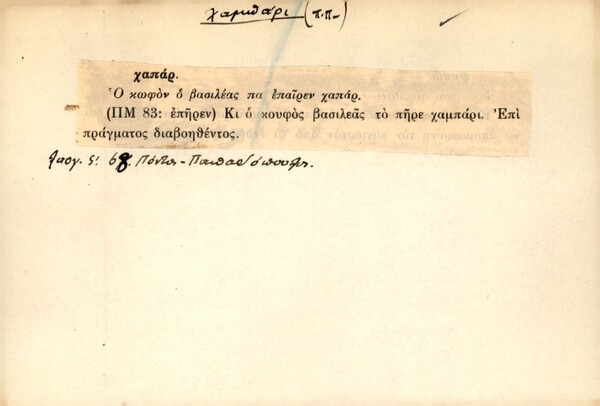 χαμπάρι (π.π.)
χαπάρ.
Ὁ κωφὸν ὁ βασιλέας πα ἐπαῖρεν χαπάρ.
(ΠΜ 83: ἐπῆρεν) Κι ὁ κουφὸς βασιλεᾶς τὸ πῆρε χαμπάρι. Ἐπὶ
πράγματος διαβοηθέντος.
Λαογ. ς' 68. Πόντος -